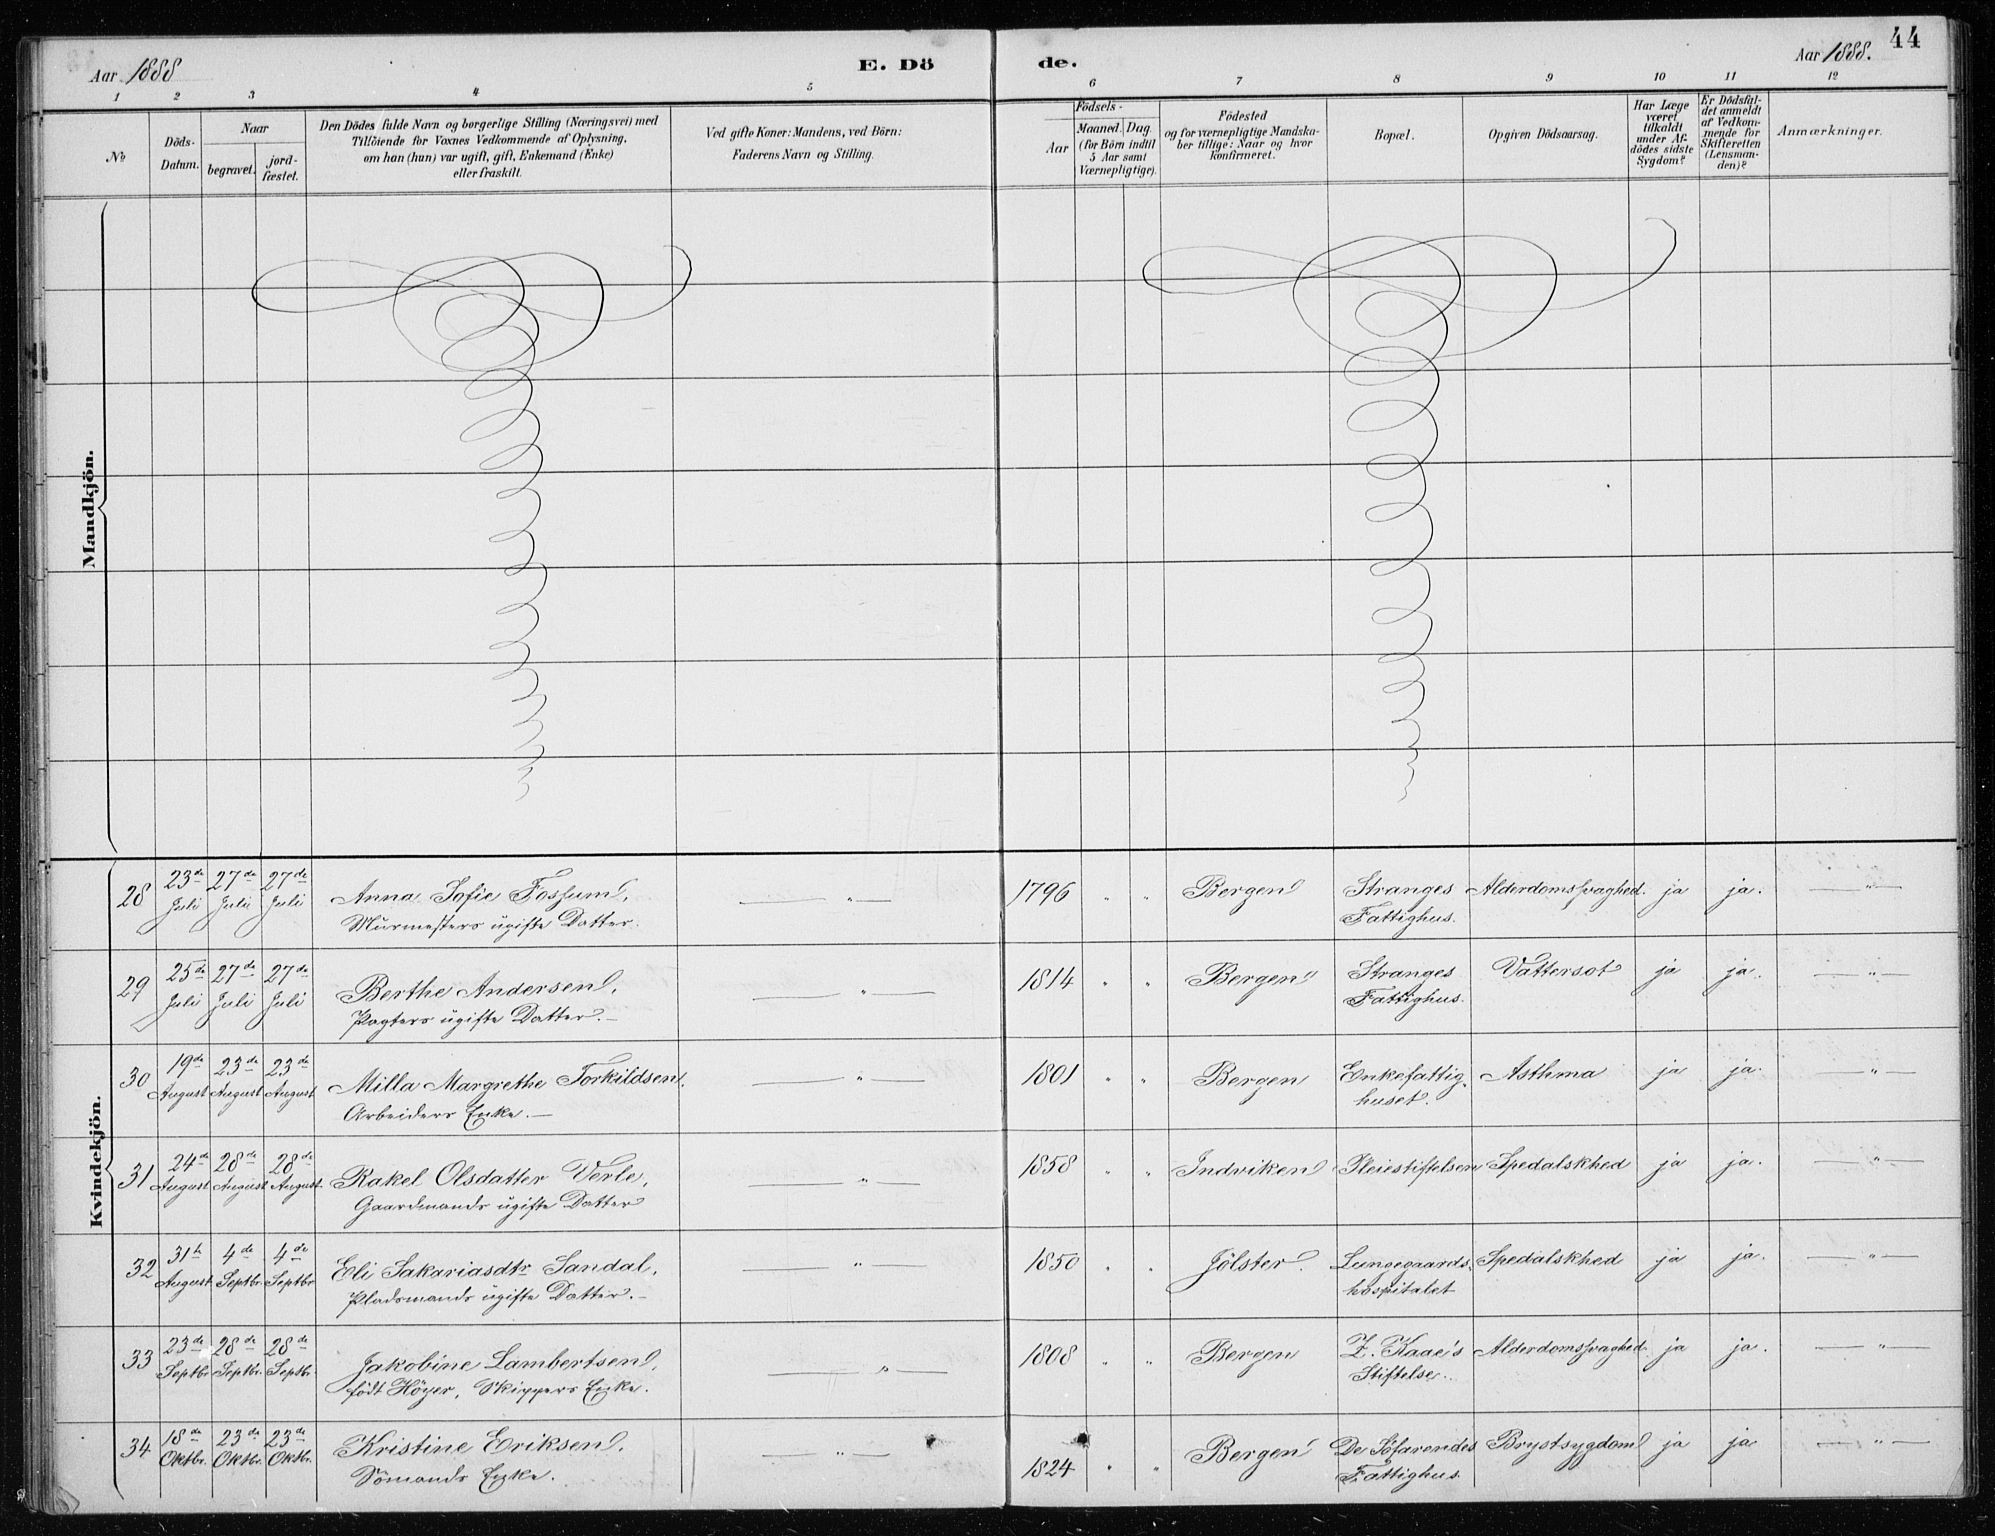 Aar 1888
E. Dö
de.
Aar 1888.
44
1 2 3 4 5 6 7 8 9 10 11 12
No
Döds-Datum.
Naar
begravet.
jord-fæstet.
Den Dödes fulde Navn og borgerlige Stilling (Næringsvei) med
Tilföiende for Voxnes Vedkommende af Oplysning,
om han (hun) var ugift, gift, Enkemand (Enke)
eller fraskilt.
Ved gifte Koner: Mandens, ved Börn:
Faderens Navn og Stilling.
Födsels-
Aar
Maaned. Dag
(for Börn indtil
5 Aar samt
Værnepligtige).
Födested
og for værnepligtige Mandska-
ber tillige: Naar og hvor
konfirmeret.
Bopæl.
Opgiven Dödsaarsag.
Har Læge
været
tilkaldt
under Af-
dödes sidste
Sygdom?
Er Dödsfal-
det anmeldt
af Vedkom-
mende for
Skifteretten
(Lensman-
den)?
Anmærkninger.
Mandkjön.
Kvindekjön.
28 23de Juli 27de Juli 27de Juli Anna Sofie Fossum, — " — 1796 " " Bergen Stranges Alderdomssvaghed. ja ja. — " —
Murmesters ugifte Datter. Fattighus.
29 25de Juli 27de Juli 27de Juli Berthe Andersen, — " — 1814 " " Bergen Stranges Vattersot ja ja. — " —
Pagters ugifte Datter. — Fattighus.
30 19de August 23de August 23de August Milla Margrethe Torkildsen, — " — 1801 " " Bergen Enkefattig- Asthma ja ja. — " —
Arbeiders Enke. — huset.
31 24de August 28de August 28de August Rakel Olsdatter Verle, — " — 1858 " " Indviken Pleiestiftelsen Spedalskhed ja ja. — " —
Gaardmands ugifte Datter
32 31te August 4de Septbr. 4de Septbr. Eli Sakariasdtr Sandal, — " — 1850 " " Jölster. Lungegaards- Spedalskhed ja ja. — " —
Pladsmands ugifte Datter. — hospitalet
33 23de Septbr. 28de Septbr. 28de Septbr. Jakobine Lambertsen, — " — 1808 " " Bergen Z. Kaae's Alderdomssvaghed ja ja. — " —
födt Höyer, Skippers Enke. Stiftelse.
34 18de Oktbr. 23de Oktbr. 23de Oktbr. Kristine Eriksen, — " — 1824 " " Bergen De Söfarendes Brystsygdom ja ja — " —
Sömands Enke. Fattighus.